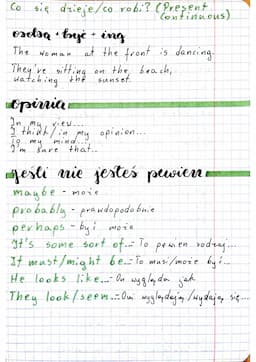 Co się dzieje/co robi? (Present Continuous)
osoba + być + ing
The woman at the front is dancing.
They're sitting on the beach,
watching the sunset.
opinia
In my view...
I think/in my opinion...
to my mind...
I'm sure that...
jeśli nie jesteś pewien
maybe - może
probably - prawdopodobnie
perhaps - być może
It's some sort of... - To pewien rodzaj...
It must/might be... - To musi/może być...
He looks like... - On wygląda jak
They look/seem... - Oni wyglądają/wydają się...